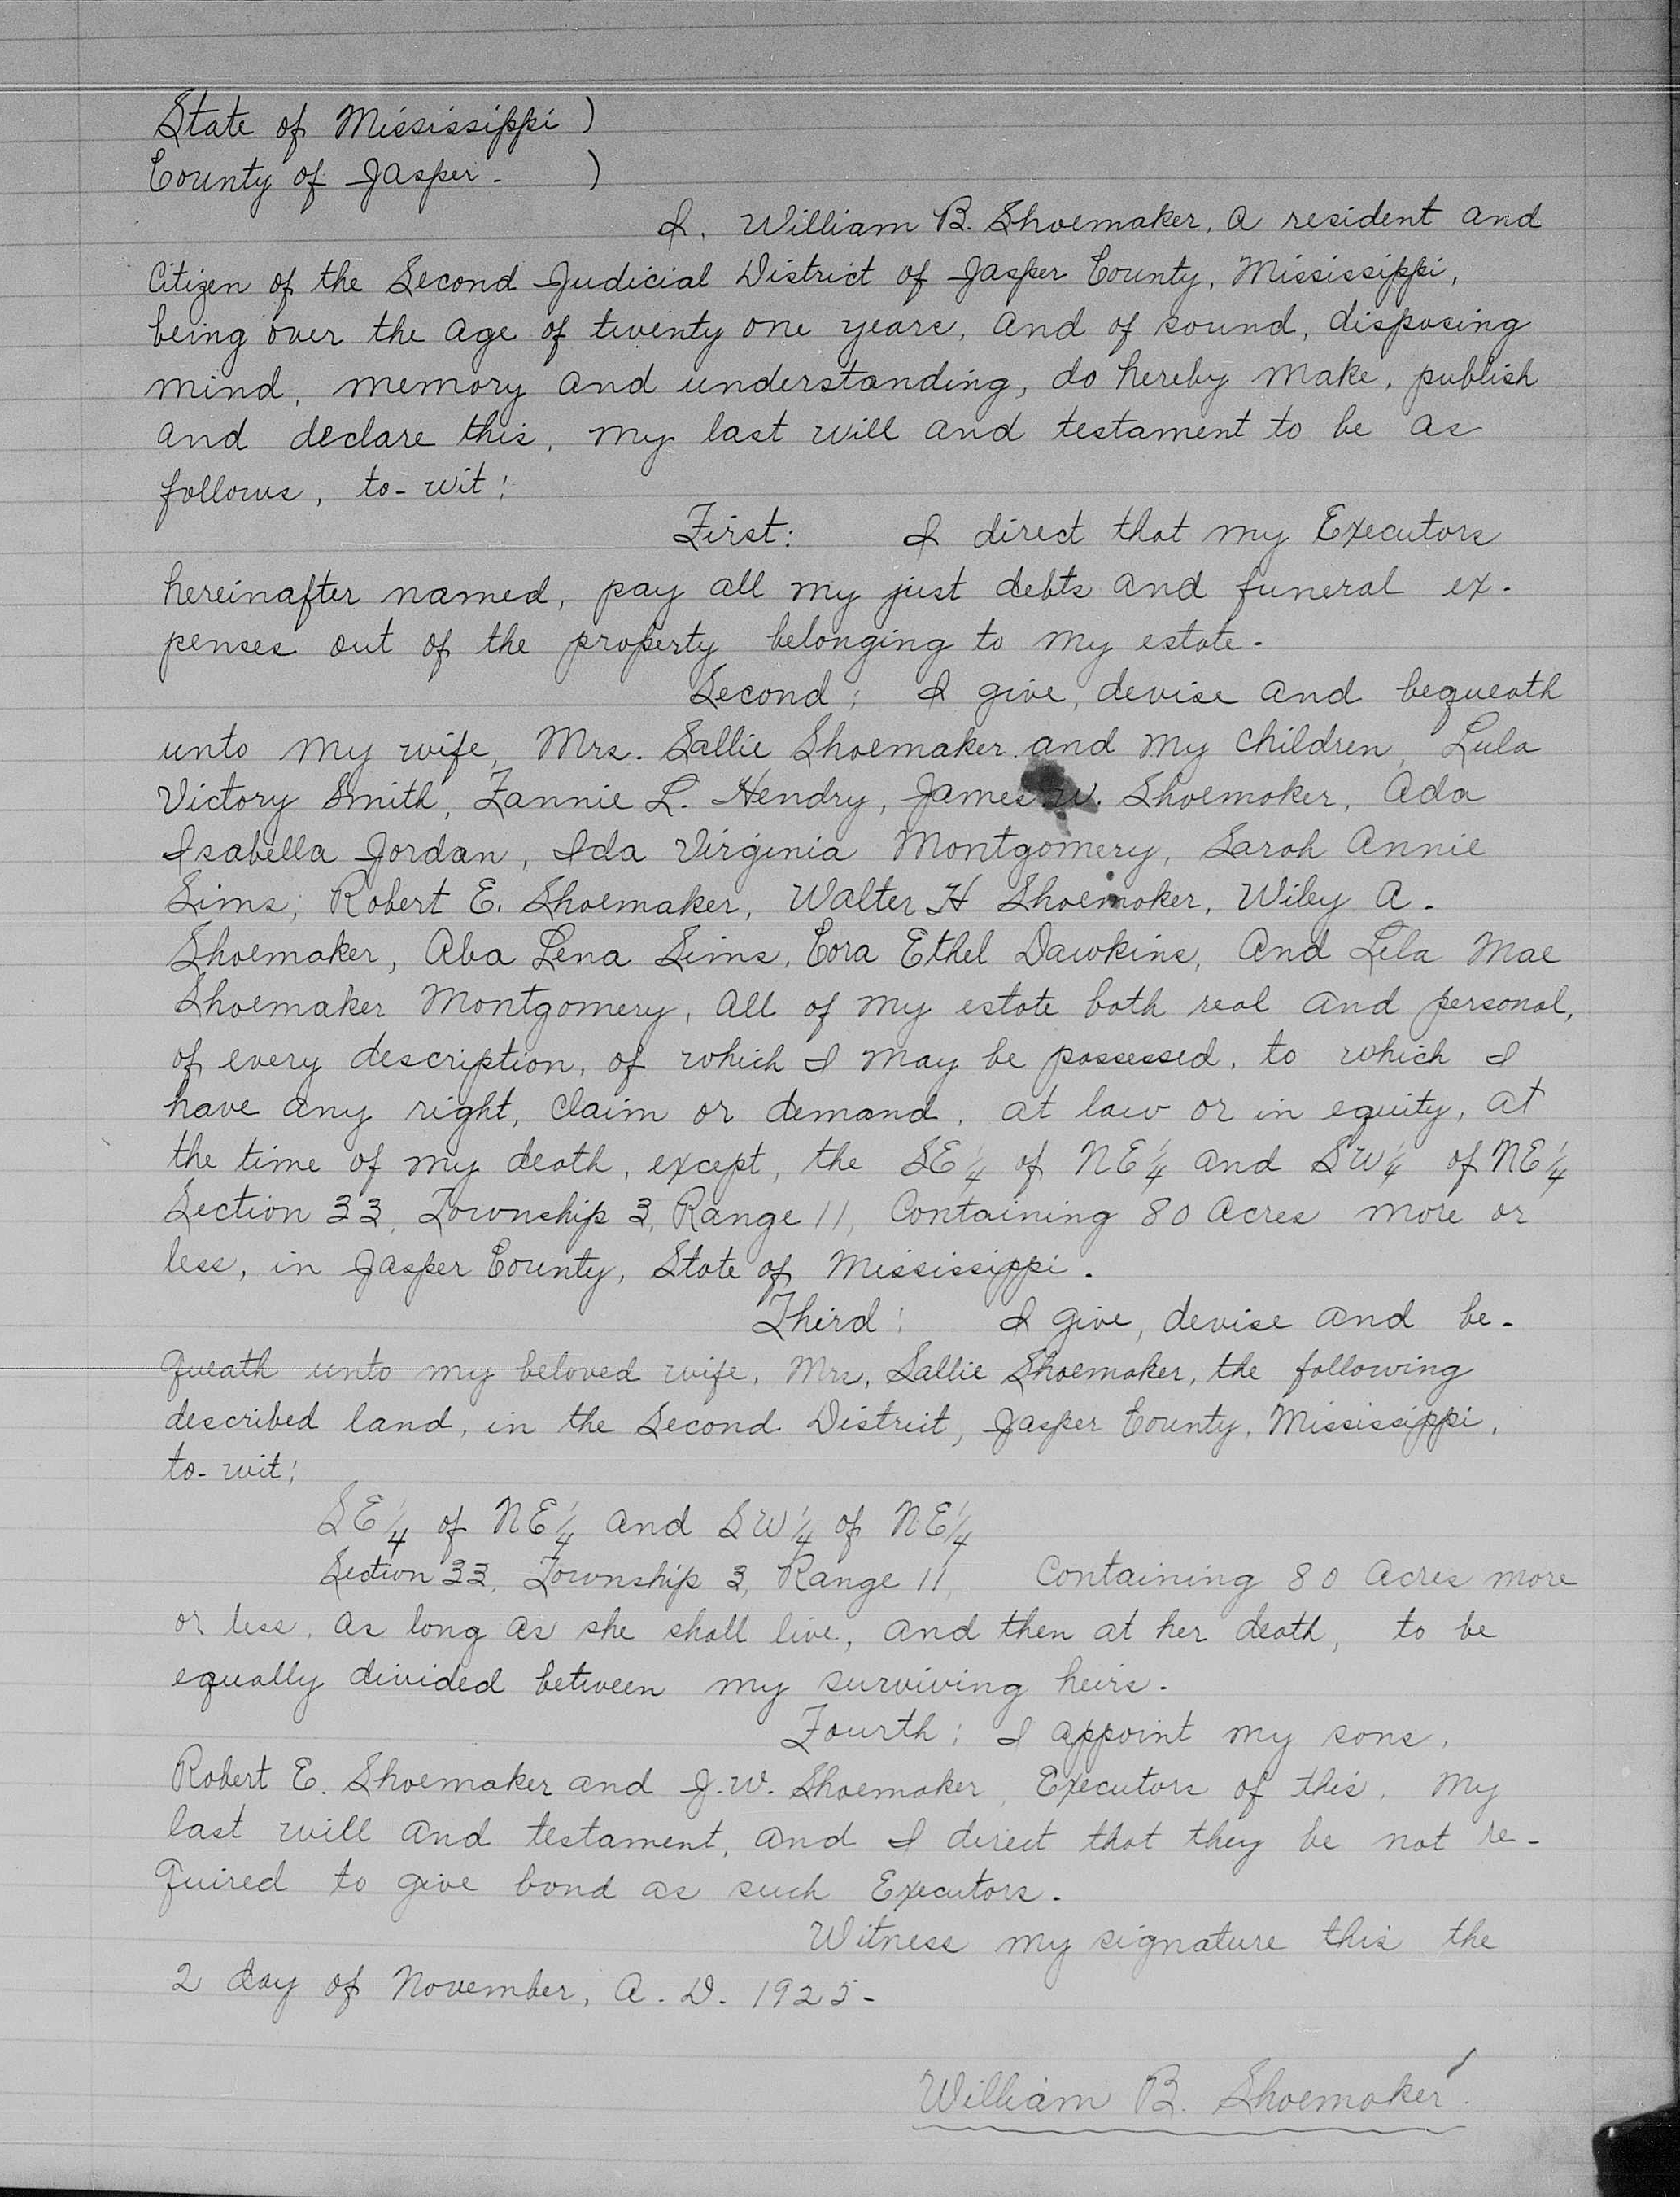 State of Mississippi )
County of Jasper. )
I, William B. Shoemaker, a resident and
Citizen of the Second Judicial District of Jasper County, Mississippi,
being over the age of twenty one years, and of sound, disposing
mind, memory and understanding, do hereby make, publish
and declare this, my last will and testament to be as
follows, to-wit:
First: I direct that my Executors
hereinafter named, pay all my just debts and funeral ex-
penses out of the property belonging to my estate.
Second: I give, devise and bequeath
unto my wife, Mrs. Sallie Shoemaker and my children, Lula
Victory Smith, Fannie L. Hendry, James W. Shoemaker, Ada
Isabella Jordan, Ida Virginia Montgomery, Sarah Annie
Sims, Robert E. Shoemaker, Walter H Shoemaker, Wiley A.
Shoemaker, Aba Lena Sims, Cora Ethel Dawkins, and Lela Mae
Shoemaker Montgomery, all of my estate both real and personal,
of every description, of which I may be possessed, to which I
have any right, claim or demand, at law or in equity, at
the time of my death, except, the SE 1/4 of NE 1/4 and SW 1/4 of NE 1/4
Section 33, Township 3, Range 11, Containing 80 acres more or
less, in Jasper County, State of Mississippi.
Third: I give, devise and be-
queath unto my beloved wife, Mrs, Sallie Shoemaker, the following
described land, in the Second District, Jasper County, Mississippi,
to-wit:
SE 1/4 of NE 1/4 and SW 1/4 of NE 1/4
Section 33, Township 3, Range 11, Containing 80 acres more
or less, as long as she shall live, and then at her death, to be
equally divided between my surviving heirs.
Fourth: I appoint my sons,
Robert E. Shoemaker and J.W. Shoemaker, Executors of this, my
last will and testament, and I direct that they be not re-
quired to give bond as such Executors.
Witness my signature this the
2 day of November, A.D. 1925-
William B. Shoemaker.